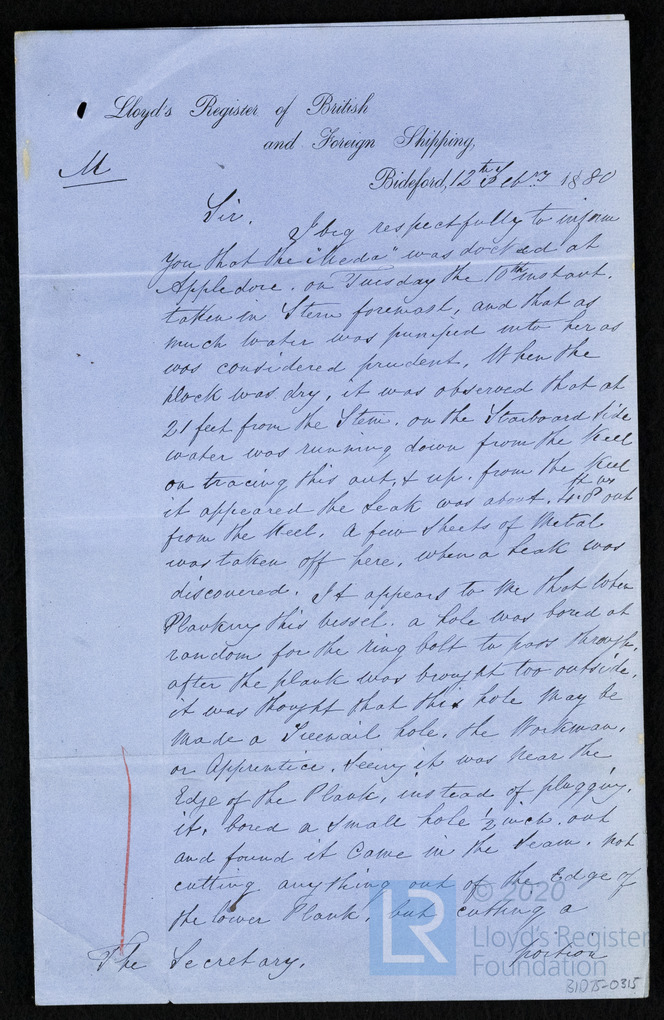 Lloyd's Register of British
and Foreign Shipping,
M
Bideford, 12th Feb'ry 1880
Sir. I beg respectfully to inform
you that the "Meda" was docked at
Appledore. on Tuesday the 10th instant.
taken in Stern foremost, and that as
much water was pumped into her as
was considered prudent. When the
Dock was dry, it was observed that at
21 feet from the Stem. on the Starboard Side
water was running down from the Keel
on tracing this out, & up. from the Keel
it appeared the Leak was about. 4ft 8in out
from the Keel. A few Sheets of Metal
was taken off here, when a Leak was
discovered. It appears to Me that When
Planking this vessel. a hole was bored at
random for the ring bolt to pass through.
after the plank was brought too outside.
it was thought that this hole May be
Made a Treenail hole. the Workman.
or Apprentice. Seeing it was near the
Edge of the Plank, instead of plugging.
it. bored a small hole 1/2 inch. out
and found it Came in the Seam. not
cutting anything out of the Edge of
the lower Plank, but cutting a
portion
The Secretary.
LR
© 2020
Lloyd's Register
Foundation
31D75-0315